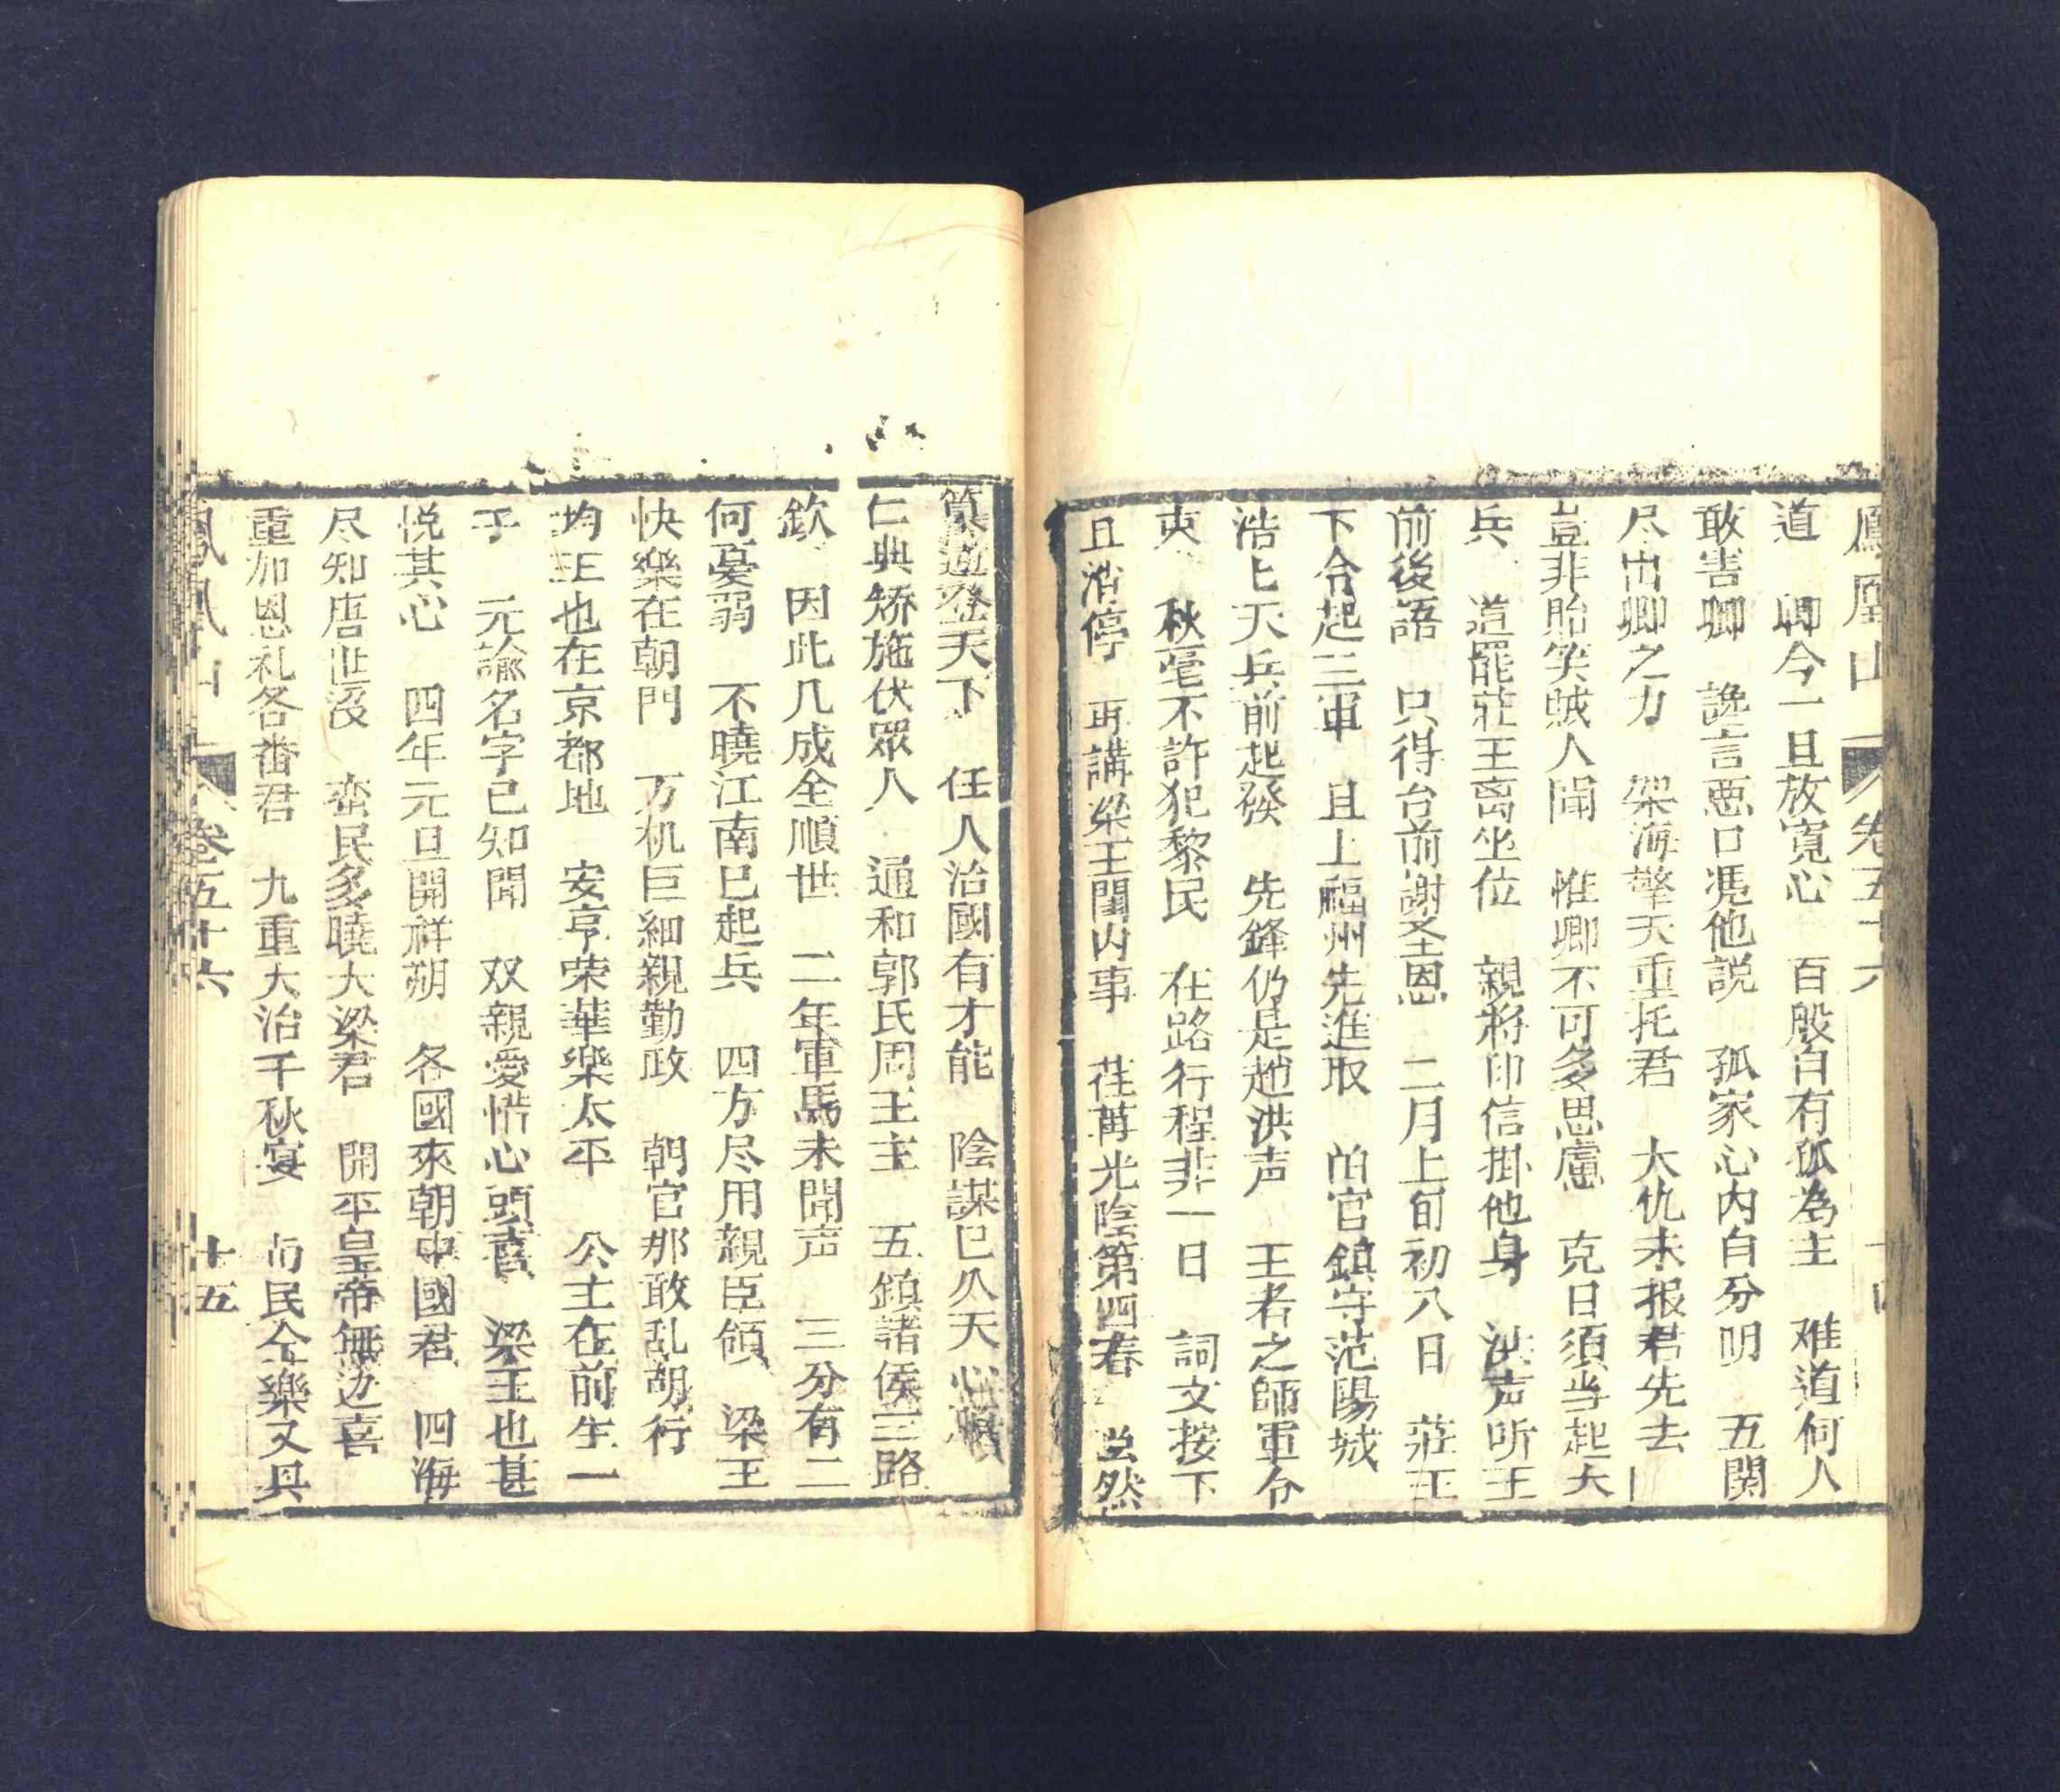 鳳凰山 卷五十六
道 卿今一旦放寬心 百般自有孤為主 难道何人
敢害卿 讒言悪口馮他説 孤家心内自分明 五関
尽出卿之力 架海擎天重托君 大仇未报君先去
豈非貽笑賊人聞 惟卿不可多思慮 克日須当起大
兵 道罷莊王离坐位 親將印信掛他身 洪声听王
前後語 只得台前謝圣恩 二月上旬初八日 莊王
下令起三軍 且上福州先進取 官鎮守范陽城
浩七天兵前起發 先鋒仍是趙洪声 王者之師軍令
秋毫不許犯黎民 在路行程非一日 詞文按下
且消停 再講梁王闈内事 荏苒光陰第四春 虽然
篡逆登天下 任人治國有才能 陰謀已久天心順
仁典矫施伏眾人 通和郭氏周王主 五鎮諸侯三路
欽 因此几成全順世 二年軍馬未聞声 三分有二
何憂弱 不曉江南已起兵 四方尽用親臣領 梁王
快樂在朝門 万机巨細親勤政 朝官那敢乱胡行
均王也在京都地 安享荣華樂太平 公主在前生一
子 元諭名字已知聞 双親愛惜心頭喜 梁王也甚
悦其心 四年元旦開祥朔 各國來朝中國君 四海
尽知唐世没 蛮民多曉大梁君 開平皇帝無边喜
重加恩礼各番君 九重大治千秋宴 与民仝樂又具
鳳凰山 卷五十六 十五